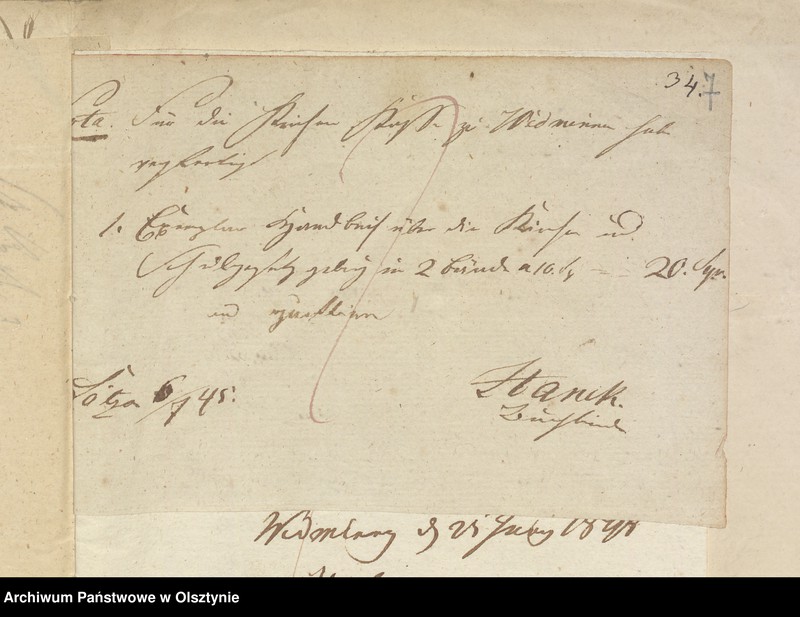 34. 7
Nota. Für die Kirchen Kasse zu Widminnen habe
1. Exemplar Handbuch über die Kirchen und
Schulgesetzgebung in 2 Bände a 10 Sg — 20. Sgr.
Lötzen 6/7 45.
Stanik.
Buchbinder
Widminnen d 25 July 1845
Archiwum Państwowe w Olsztynie